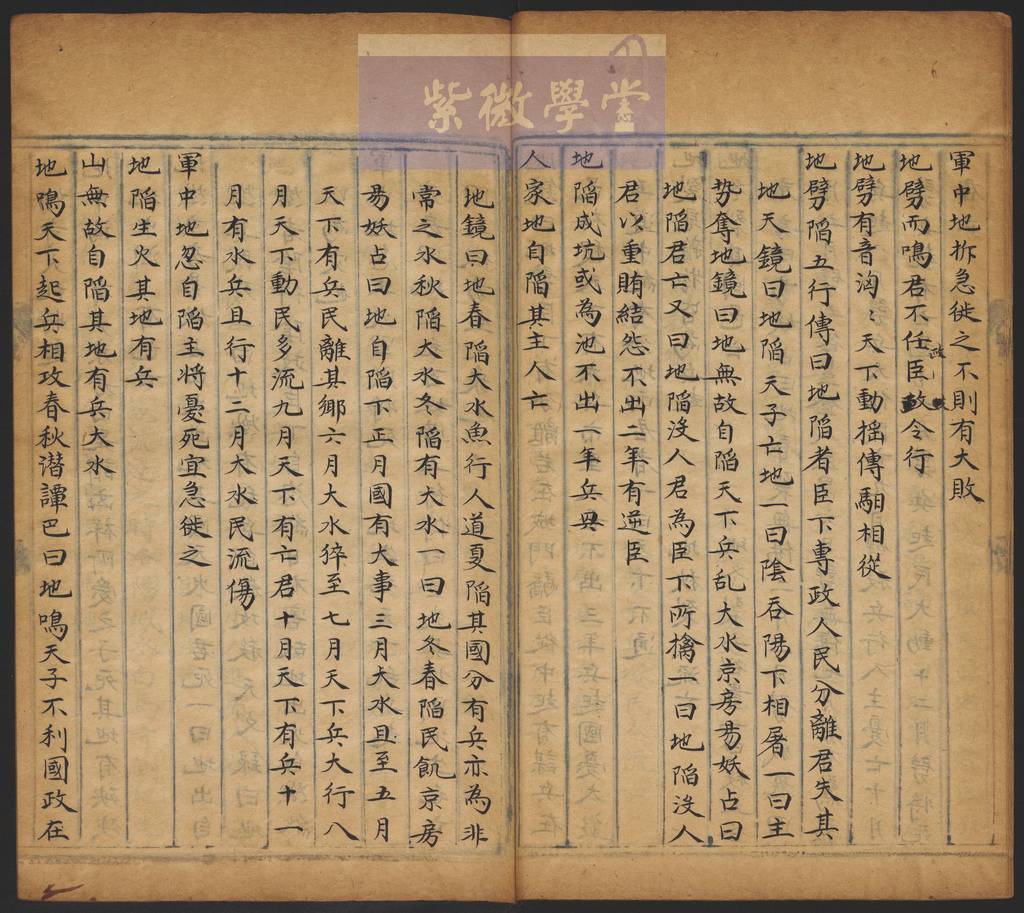 紫微學堂
軍中地拆急徙之不則有大敗
地劈而鳴君不任臣政令行
地劈有音洶〻天下動揺傳馹相從
地劈陷五行傳曰地陷者臣下專政人民分離君失其
地天鏡曰地陷天子亡地一曰陰吞陽下相屠一曰主
勢奪地鏡曰地無故自陷天下兵乱大水京房易妖占曰
地陷君亡又曰地陷沒人君為臣下所擒一曰地陷沒人
君以重賄結怨不出二年有逆臣
地陷成坑或為池不出一年兵
人家地自陷其主人亡
地鏡曰地春陷大水魚行人道夏陷其國分有兵亦為非
常之水秋陷大水冬陷有大水一曰地冬春陷民飢京房
易妖占曰地自陷下正月國有大事三月大水且至五月
天下有兵民離其鄉六月大水猝至七月天下兵大行八
月天下動民多流九月天下有亡君十月天下有兵十一
月有水兵且行十二月大水民流傷
軍中地忽自陷主将憂死宜急徙之
地陷生火其地有兵
山無故自陷其地有兵大水
地鳴天下起兵相攻春秋潛譚巴曰地鳴天子不利國政在